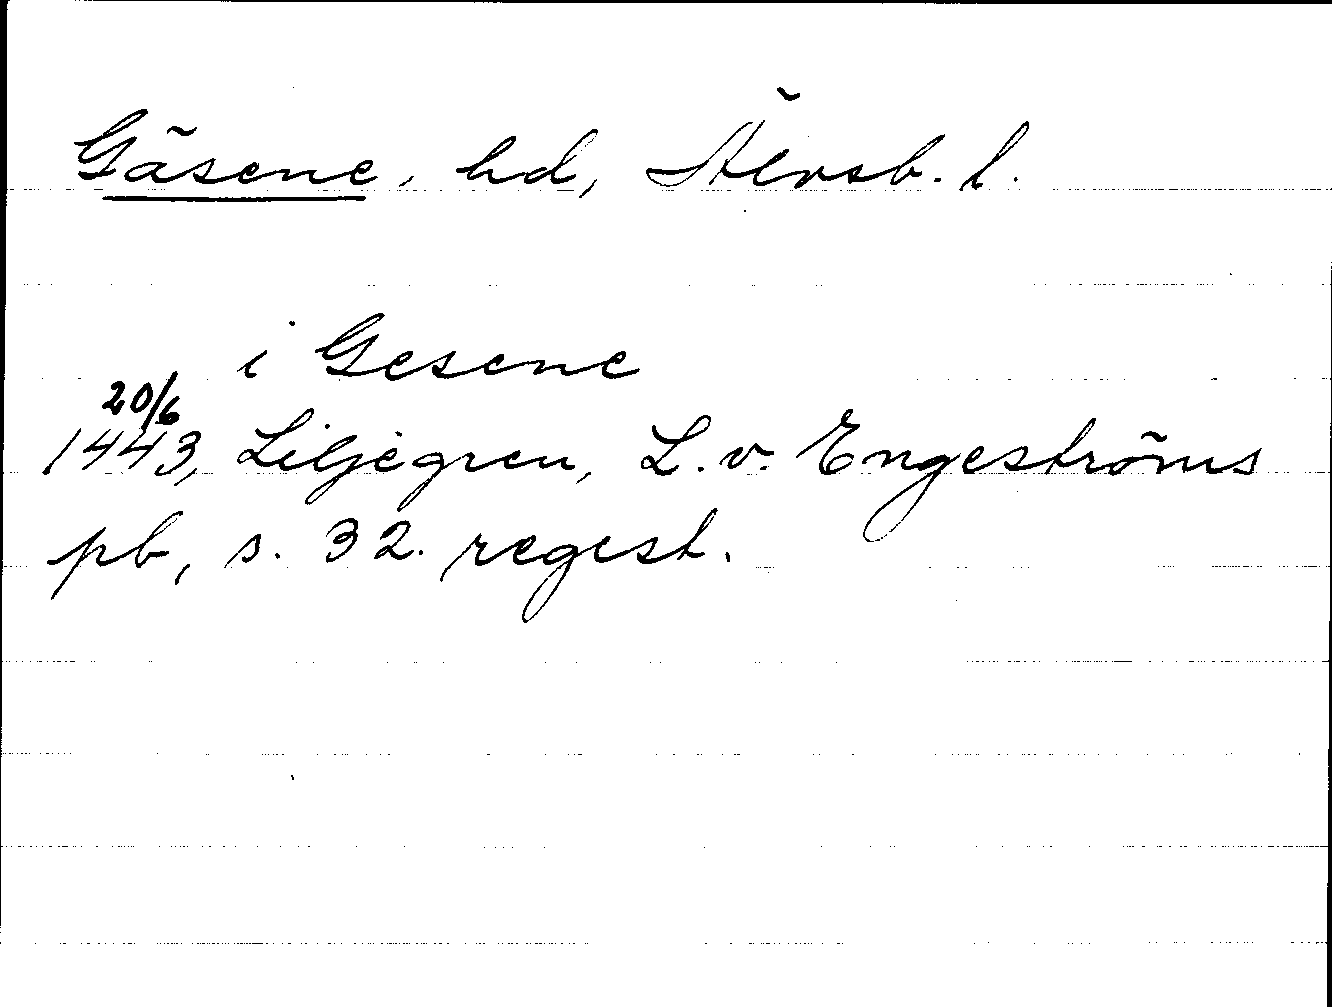 Gäsene, hd, Älvsb. l.
i Gesene
20/6
1443, Liljegren, L. v. Engeströms
pb, s. 32. regest.